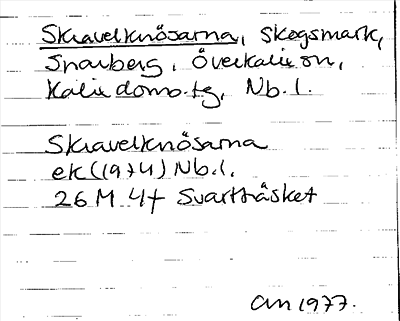 Skravelknösarna, Skogsmark,
Snarberg, Överkalix sn,
Kalix doms.tg, Nb.l.
Skravelknösarna
ek (1974) Nb.l.
26 M 4f Svartträsket
AM 1977.